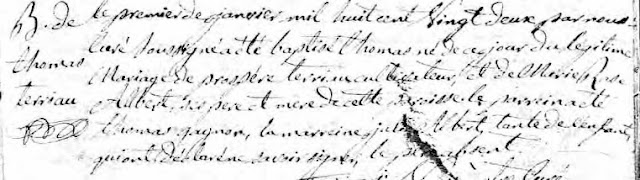 B. de
thomas
terriau
le premier de janvier mil huit cent vingt deux par nous
Curé soussigné a été baptisé thomas né de ce jour du légitime
Mariage de prospère terriau cultivateur, et de Marie Rose
Albert, ses père et mère de cette paroisse le parrein a été
thomas gagnon, la marreine Albert, tante de l'enfant,
qui ont déclaré ne savoir signer, le père absent